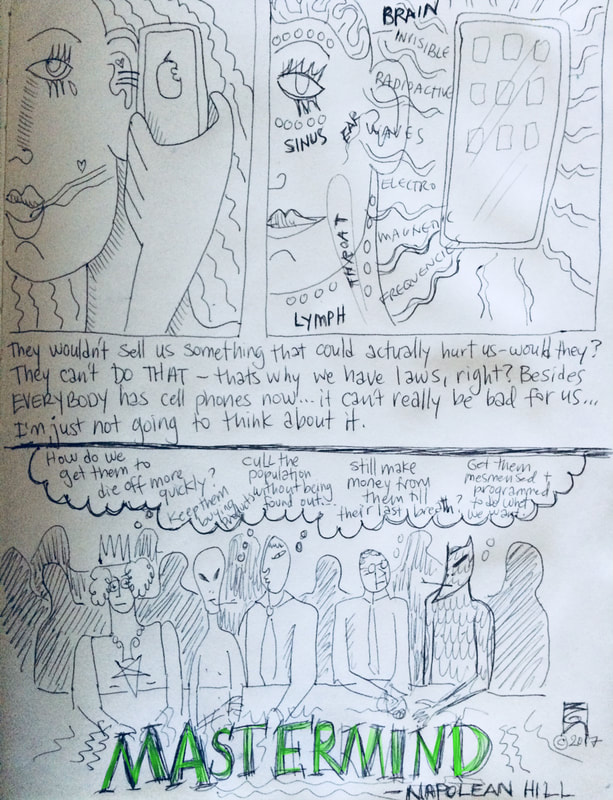 BRAIN
INVISIBLE
RADIOACTIVE
WAVES
ELECTRO
MAGNETIC
FREQUENCIE
SINUS
EAR
THROAT
LYMPH
They wouldn't sell us something that could actually hurt us - would they?
They can't DO THAT - thats why we have laws, right? Besides
EVERYBODY has cell phones now... it can't really be bad for us...
I'm just not going to think about it.
How do we
get them to
die off more
quickly?
Keep them
buying
cull the
population
without being
found out...
still make
money from
them till
their last breath?
Get them
mesmerised +
programmed
to do what
we want
MASTERMIND
- NAPOLEAN HILL
© 2017